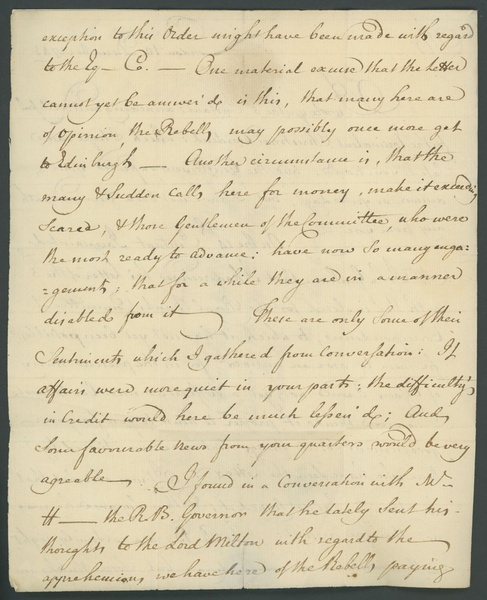 exception to this Order might have been made with regard
to the Eq— Co. — One material excuse that the Letter
cannot yet be answer'd is this, that many here are
of opinion, the Rebells may possibly once more get
to Edinburgh — Another circumstance is, that the
many & Sudden calls here for money, make it exceeding
Scarce, & those Gentlemen of the Committee, who were
the most ready to advance; have now So many enga-
-gements; that for a while they are in a manner
disabled from it These are only Some of their
Sentiments which I gathered from Conversation: If
affairs were more quiet in your parts; the difficulty's
in Credit would here be much lessen'd; And
Some favourable News from your quarters would be very
agreable — I found in a Conversation with Mr
H— the R. B. Governor that he lately Sent his
thoughts to the Lord Milton with regard to the
apprehensions we have here of the Rebells paying